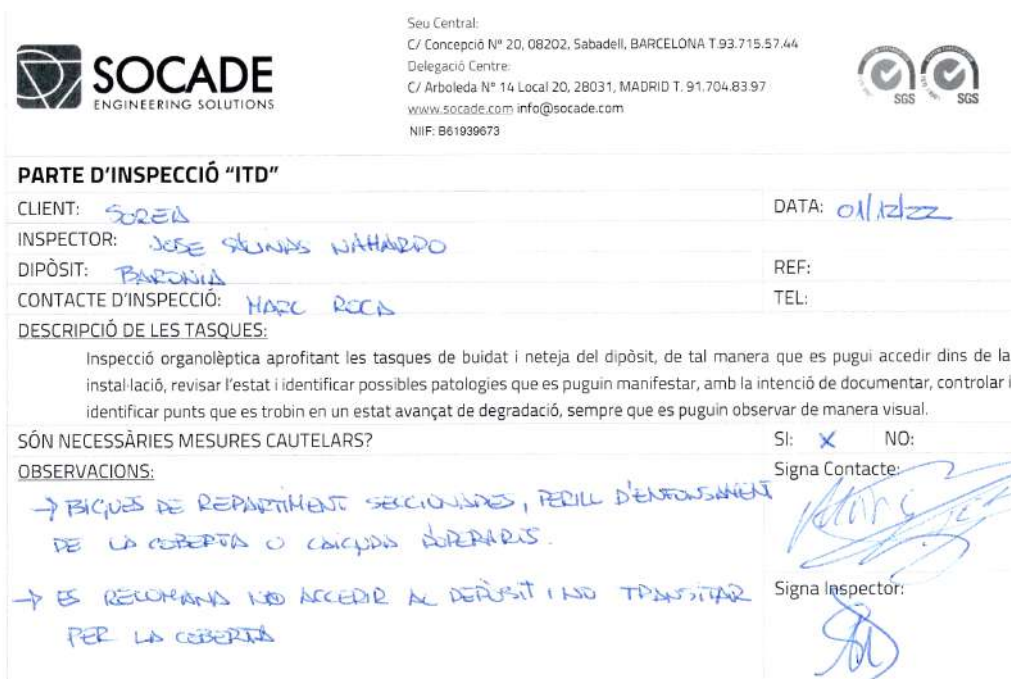 SOCADE
ENGINEERING SOLUTIONS
Seu Central:
C/ Concepció Nº 20, 08202, Sabadell, BARCELONA T.93.715.57.44
Delegació Centre:
C/ Arboleda Nº 14 Local 20, 28031, MADRID T. 91.704.83.97
www.socade.com info@socade.com
NIIF: B61939673
SGS SGS
PARTE D'INSPECCIÓ "ITD"
CLIENT: SOREA
DATA: 01/12/22
INSPECTOR: JOSE SALINAS
DIPÒSIT: BARONIA
REF:
CONTACTE D'INSPECCIÓ: MARC ROCA
TEL:
DESCRIPCIÓ DE LES TASQUES:
Inspecció organolèptica aprofitant les tasques de buidat i neteja del dipòsit, de tal manera que es pugui accedir dins de la
instal·lació, revisar l'estat i identificar possibles patologies que es puguin manifestar, amb la intenció de documentar, controlar i
identificar punts que es trobin en un estat avançat de degradació, sempre que es puguin observar de manera visual.
SÓN NECESSÀRIES MESURES CAUTELARS?
SI: X NO:
OBSERVACIONS:
Signa Contacte:
→ BIGUES DE REPARTIMENT SECCIONADES, PERILL D'ENFONSAMENT
DE LA COBERTA O CAIGUDA D'OPERARIS.
→ ES RECOMANA NO ACCEDIR AL DEPÒSIT I NO TRANSITAR
PER LA COBERTA
Signa Inspector: